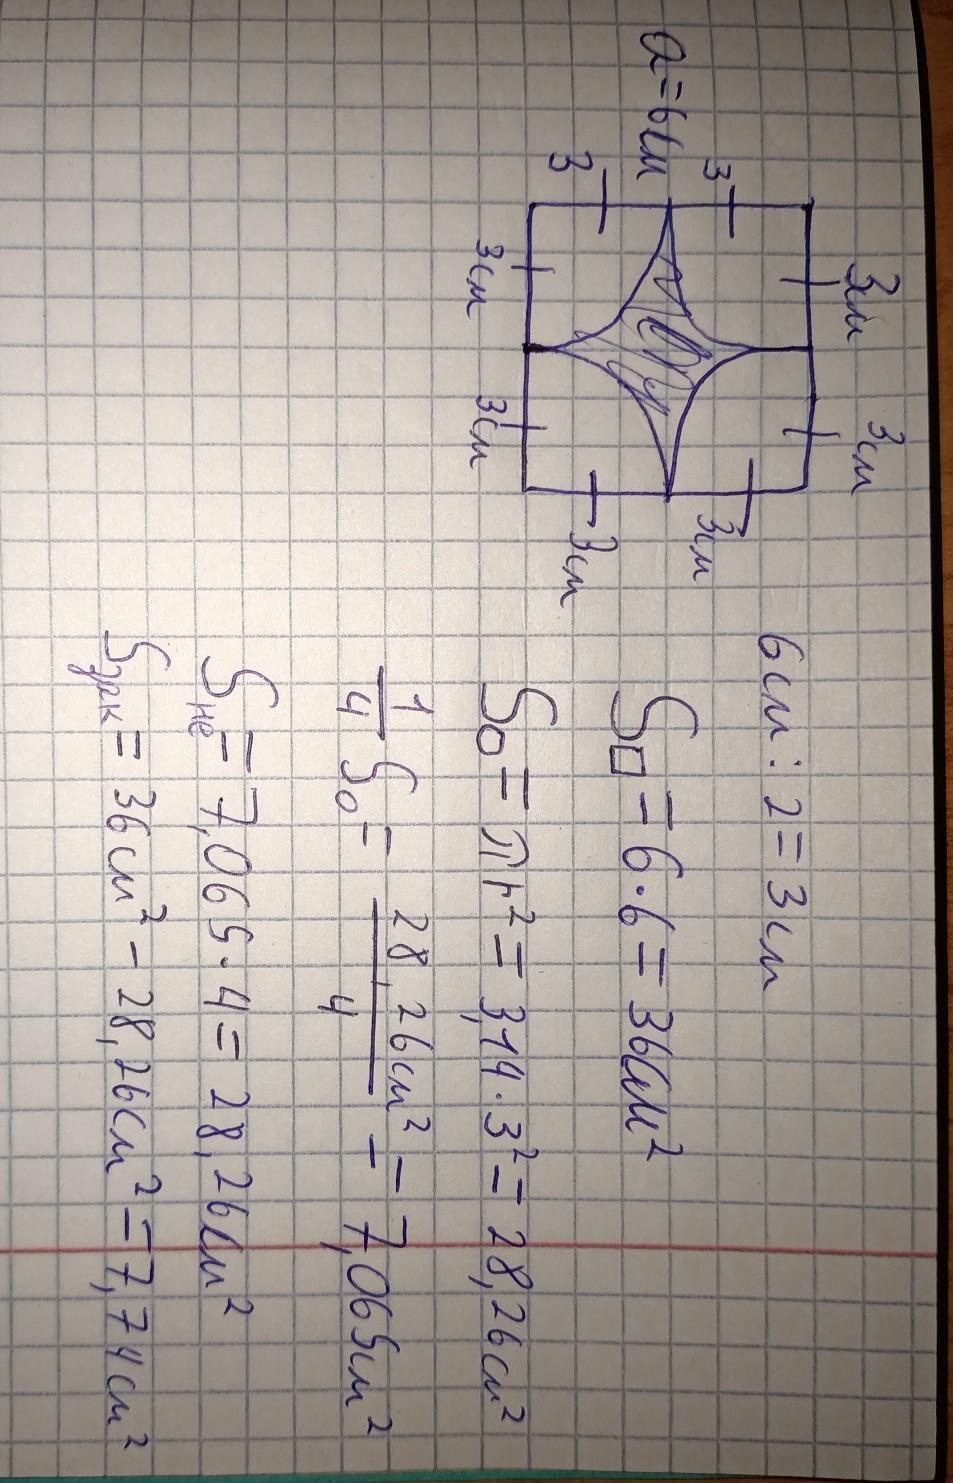 a=6см
3
3
3см
3см
3см
3см
3см
3см
6см : 2 = 3см
S□ = 6·6 = 36см²
S○ = πr² = 3,14·3² = 28,26см²
1/4 S○ = 28,26см²/4 = 7,065см²
Sне = 7,065·4 = 28,26см²
Sзак = 36см² - 28,26см² = 7,74см²